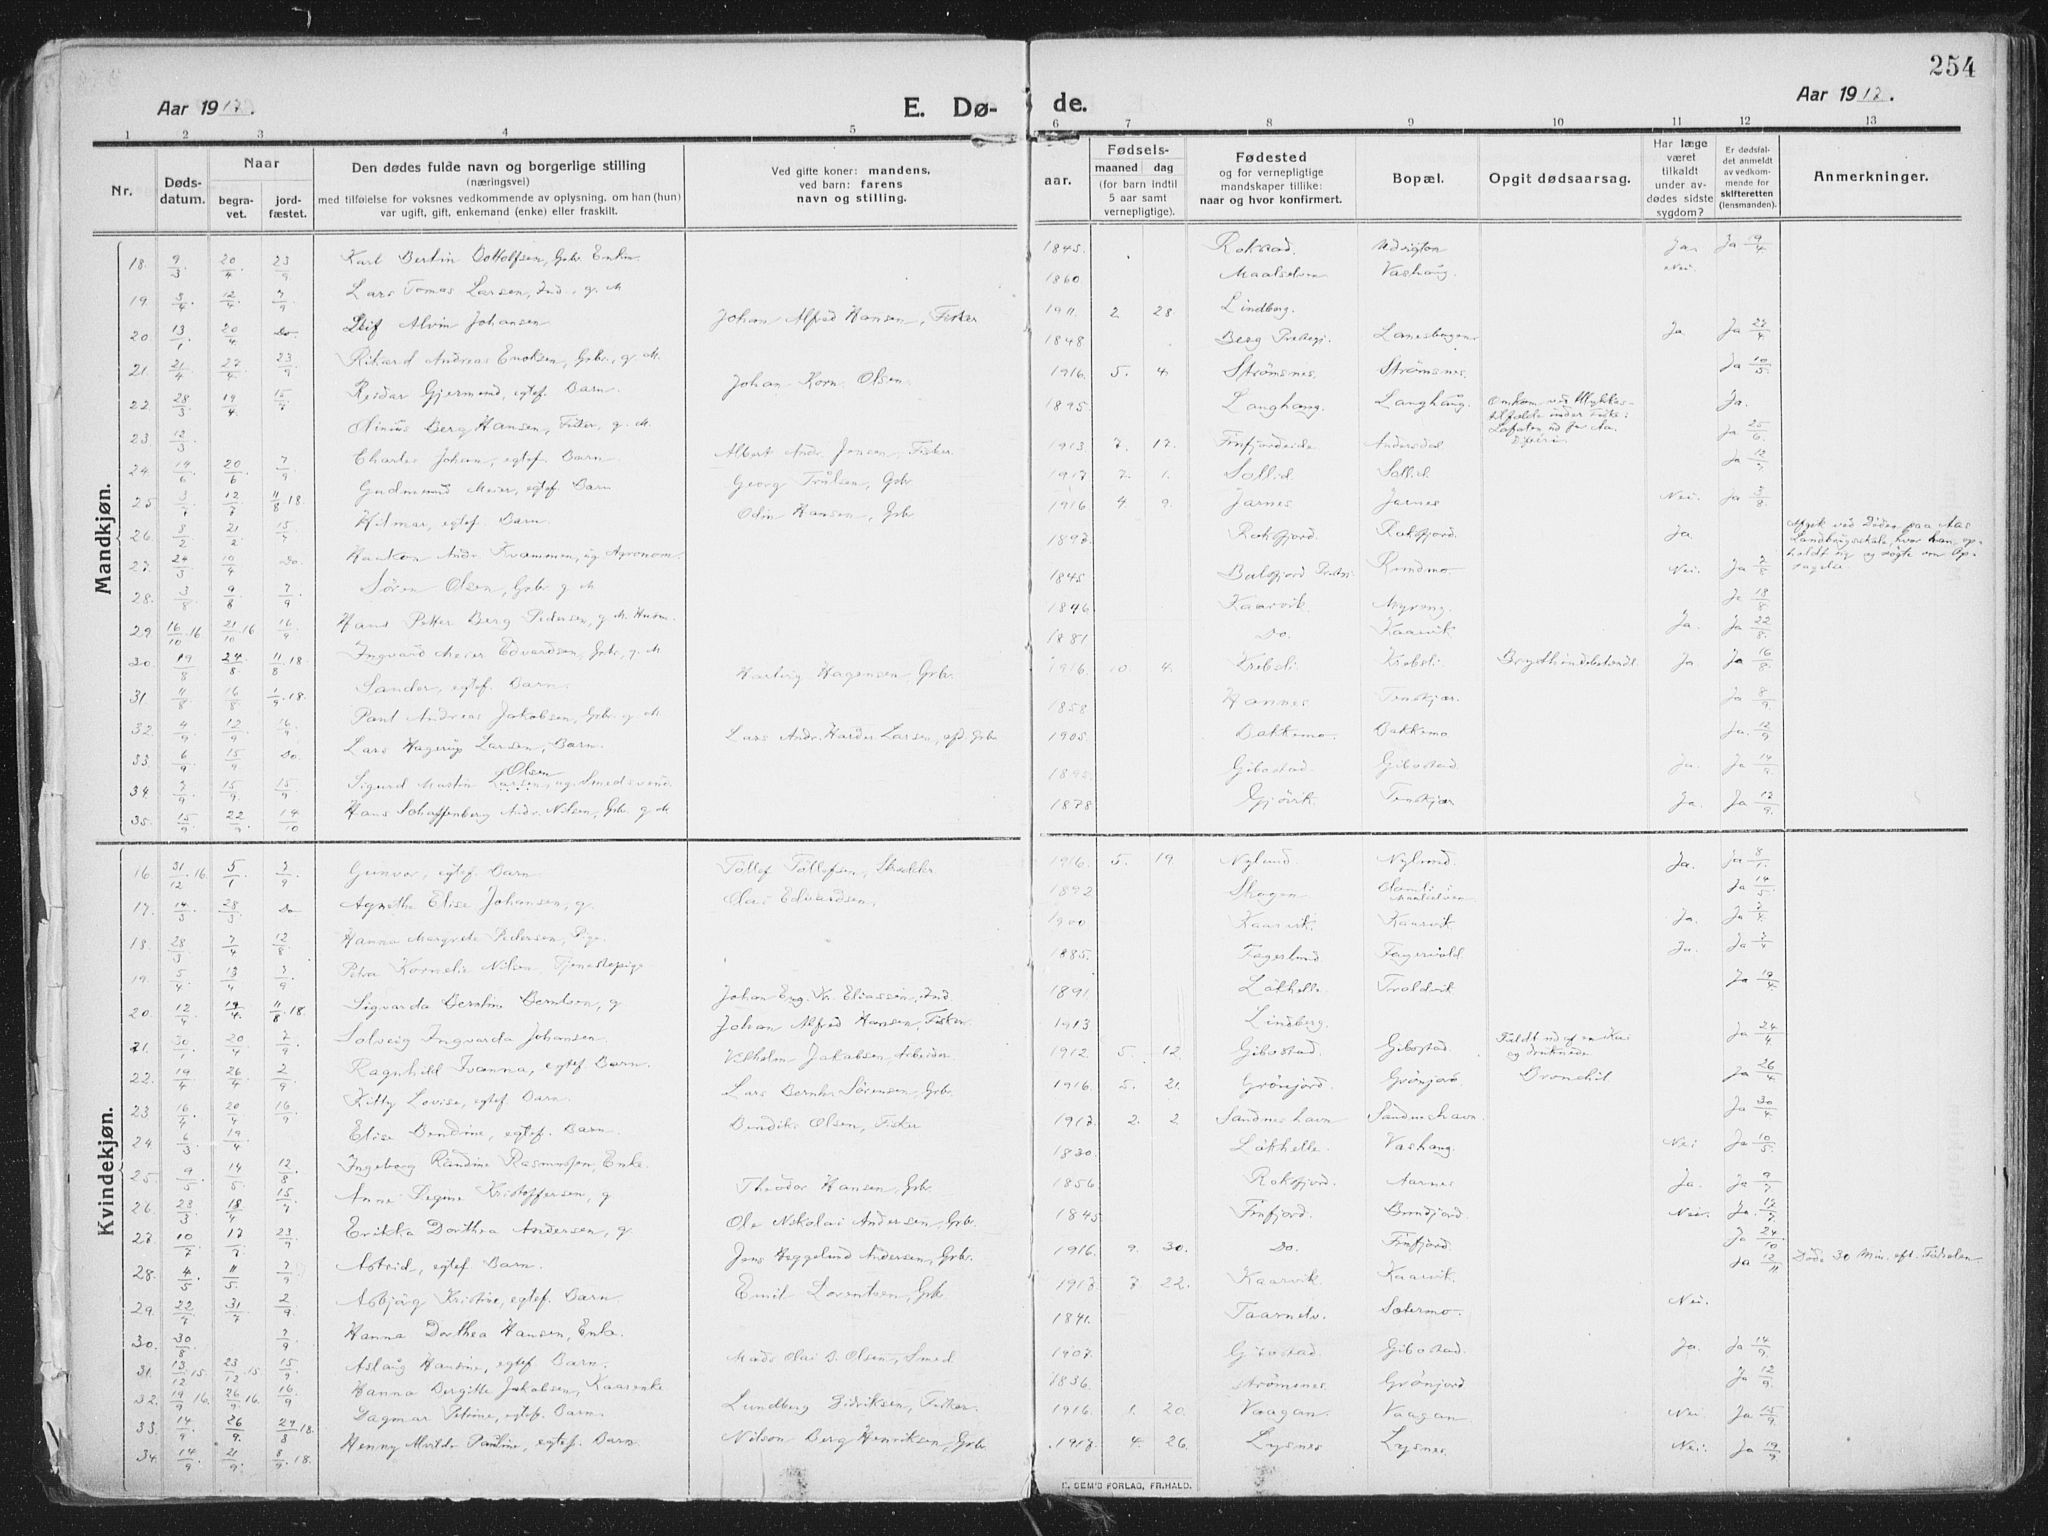 254
Aar 1917. E. Dø- de. Aar 1917.
1 2 3 4 5 6 7 8 9 10 11 12 13
Nr. Døds-datum. Naar begra-vet. jord-fæstet. Den dødes fulde navn og borgerlige stilling (næringsvei) med tilføielse for voksnes vedkommende av oplysning, om han (hun) var ugift, gift, enkemand (enke) eller fraskilt. Ved gifte koner: mandens, ved barn: farens navn og stilling. Fødsels- aar. maaned dag (for barn indtil 5 aar samt vernepligtige). Fødested og for vernepligtige mandskaper tillike: naar og hvor konfirmert. Bopæl. Opgit dødsaarsag. Har læge været tilkaldt under av-dødes sidste sygdom? Er dødsfal-det anmeldt av vedkom-mende for skifteretten (lensmanden). Anmerkninger.
Mandkjøn.
18. 9/3 20/4 23/9 Karl Bertin Dottolfsen, Gbr. Enkm. 1845. Rokstad. Ja. Ja 19/4
19. 3/4 12/4 7/9 Lars Tomas Larsen, Ind. g. M 1860 Maalselven Vashaug. Nei.
20 13/1 20/4 Do Leif Alvin Johansen Johan Alfred Hansen, Fisker 1911. 2 28 Lindborg.
21. 21/4 27/4 23/9 Rikard Andreas Enoksen, Gbr., g. M. 1848 Berg Prestegj. Lanesbogen Ja Ja 27/4
22. 28/3 19/4 15/7 Reidar Gjermund, egtef. Barn. Johan Korn. Olsen. 1916. 5. 4. Strømsnes. Strømsnes. Ja 10/5
23 12/3 Olinius Berg Hansen, Fisker, g. M. 1895. Langhaug. Langhaug. Omkom ved Ulykkestilfælde under Fiske i Lofoten Ja.
24 19/6 20/6 7/9 Charles Johan, egtef. Barn Albert Andr. Jensen, Fisker. 1913 7. 17. Finfjordeide Andersdal Ja 25/6
25 3/7 12/7 11/8.18. Gudmund Meier, egtef. Barn Georg Trulsen, Gbr 1917 2. 1. Sollid Sollid Ja 12/7
26. 3/2 21/2 15/7 Hilmar, egtef. Barn. Odin Hansen, Gbr 1916 4. 9. Jarnes Jarnes Nei. Ja 3/8
27. 24/3 10/4 Do. Haakon Andr. Kvammen, ug. Agronom. 1892. Roksfjord. Roksfjord. Ja. Afgik ved Døden paa Aas Landbrugsskole, hvor han opholdt sig
28. 3/8 9/8 7/9 Søren Olsen, Gbr. g. M 1845 Balsfjord Prestgj. Rundmo. Nei. Ja 7/8
29 16/10.16 21/10.16 16/9 Hans Petter Berg Pedersen, g. M. Husm. 1846. Kaarvik. Myreng. Ja 18/8
30. 19/8 24/8 11/8.18. Ingvard Meier Edvardsen, Gbr. g. M 1881 Do. Kaarvik Ja. Ja 22/8.
31 11/8 16/8 1/9.18. Sander, egtef. Barn. Hartvig Hagensen Gbr. 1916. 10. 4. Krebsli Krebsli Brysthindebetændelse Ja Ja 16/8
32. 4/9 12/9 16/9. Paul Andreas Jakobsen, Gbr. g. M. 1858 Hannes Tenskjær. Ja 8/9
33. 6/9 15/9 Do. Lars Hagerup Larsen, Barn. Lars Andr. Harder Larsen, afd. Gbr 1905. Bakkemo. Bakkemo Ja. 12/9
34. 7/9. 15/9. 15/9. Sigurd Martin Olsen, ug. Smedsvend 1895. Gibostad. Gibostad. Ja. Ja 14/9
35. 15/9. 22/9. 14/10 Hans Schaffenberg Andr. Nilsen, Gbr. g. M 1878 Gjøvik. Tenskjær Ja. Ja 17/9.
Kvindekjøn.
16. 31/12.16. 5/1. 7/9. Gunvor, egtef. Barn Tollef Tollefsen, Skrædder. 1916. 5. 19. Nylund. Nylund. Ja. Ja 8/1.
17. 14/3 28/3 Do Agnethe Elise Johansen, g. Olai Edvardsen, 1892 Skogen i Maalselven Ja 14/5
18. 28/3 7/4 12/8. Hanna Margrete Pedersen, Pige. 1900 Kaarvik. Kaarvik. Ja. Ja 7/4.
19. 5/4 13/4 7/9. Petra Kornelie Nilsen, Tjenestepige 1885. Fagerlund Fagervold. Ja. Ja 7/4
20. 12/4 19/4. 11/8.18. Sigvarda Berntine Berntsen, g. Johan Eng. Kr. Eliassen, Ind. 1891 Løkhelle. Troldvik Ja 19/4.
21. 30/1 20/4 7/9. Solveig Ingvarda Johansen Johan Alfred Hansen, Fisker 1913 Lindberg.
22. 19/4 26/4. 2/9. Ragnhild Ivanna, egtef Barn. Vilhelm Jakobsen, Arbeider. 1912. 5. 12. Gibostad. Gibostad. Faldt ud af en Kai og druknede Ja 24/4
23 16/4 20/4 16/9 Kitty Lovise, egtef. Barn. Lars Bernhr Sørensen, Gbr. 1916. 5. 21. Grønjord. Grønjord Bronchit Ja 26/4
24. 6/3 19/4 Elise Bendine, egtef. Barn. Bendik Olsen, Fisker 1917. 2. 2. Sandneshavn Sandneshavn. Ja 30/4
25. 9/5 14/5. 12/8 Ingeborg Randine Rasmussen, Enke. 1830. Løkhelle. Vashaug. Nei Ja 10/5.
26. 23/3 18/4 15/7 Anne Regine Kristoffersen, g Theodor Hansen, Gbr. 1856 Roksfjord. Aarnes Ja. Ja 9/7
27. 10/7 17/7. 23/9 Erikka Dorthea Andersen, g. Ole Nikolai Andersen, Gbr. 1845 Finfjord. Bondjord. Nei. Ja. 17/7
28. 4/5 11/5. 7/9. Astrid, egtef. Barn. Jens Heggelund Andersen, Gbr. 1916. 9. 30. Do. Finfjord. Ja 24/10
29. 22/7 31/7 2/9 Asbjørg Kristine, egtef. Barn Emil Lorentsen, Gbr. 1917 7 22. Kaarvik. Kaarvik. Ja 12/11 Døde 30 Min. eft. Fødselen.
30. 30/8 7/9 Hanna Dorthea Hansen, Enke. 1841. Taarnelv. Sætermo. Nei.
31. 13/12.15. 23/12.15. 15/9. Aslaug Hansine, egtef. Barn. Mads Olai B. Olsen, Smed 1907. Gibostad. Gibostad. Ja. Ja 14/9.
32. 19/9.16. 26/9.16. 16/9 Hanna Bergitte Jakobsen, Kaarenke 1836. Strømsnes Grønjord Ja 12/9.
33. 14/9. 26/9. 29/8.18 Dagmar Petrine, egtef. Barn. Lundberg Didriksen, Fisker. 1916. 1. 20. Vaagan. Vaagan. Nei Ja 15/9
34 14/9 21/9. 8/9.18. Henny Matilde Pauline, egtef. Barn Nilson Berg Henriksen, Gbr. 1917. 4. 26. Lysnes Lysnes. Nei. Ja 19/9
E. SEM'S FORLAG, FR.HALD.